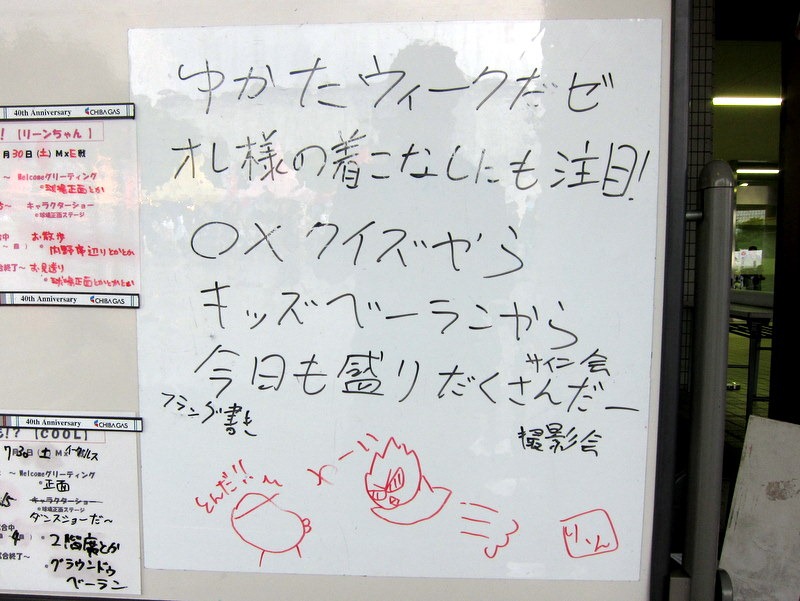 ゆかたウィークだゼ
オレ様の着こなしにも注目!
○×クイズやら
キッズベーランから
今日も盛りだくさんだー
サイン会
フラング書き
撮影会
とんだ!!
わーい
りーん
40th Anniversary CHIBA GAS
! 【リーンちゃん】
月30日(土)M×E戦
～ Welcomeグリーティング
球場正面とか
～ キャラクターショー
球場正面ステージ
お散歩
内野席辺りとかとか
終了～ お見送り
球場正面とかとかとか
40th Anniversary CHIBA GAS
40th Anniversary CHIBA GAS
!? 【COOL】
7月30日(土)M×イーグルス
～ Welcomeグリーティング
正面
キャラクターショー
球場正面ステージ
ダンスショーだ～
2階席とか
試合終了～
グラウンドゥ
ベーラン